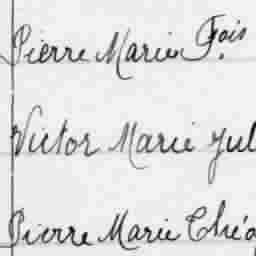 Pierre Marie Fois
Victor Marie Jul
Pierre Marie Théo